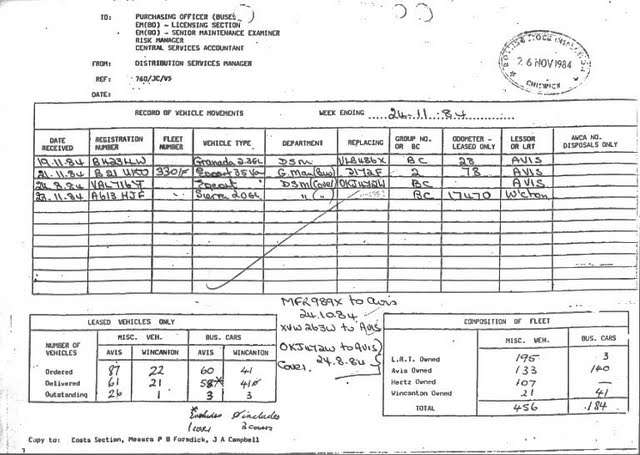 TO: PURCHASING OFFICER (BUSES)
EM(BO) - LICENSING SECTION
EM(BO) - SENIOR MAINTENANCE EXAMINER
RISK MANAGER
CENTRAL SERVICES ACCOUNTANT
FROM: DISTRIBUTION SERVICES MANAGER
REF: 760/JC/V5
DATE:
ROLLING STOCK INSPECTION
26 NOV 1984
CHISWICK
RECORD OF VEHICLE MOVEMENTS WEEK ENDING 24.11.84
DATE RECEIVED REGISTRATION NUMBER FLEET NUMBER VEHICLE TYPE DEPARTMENT REPLACING GROUP NO. OR BC ODOMETER - LEASED ONLY LESSOR OR LRT AWCA NO. DISPOSALS ONLY
19.11.84 Granada 2.3GL DSM VLB486X BC 23 AVIS
21.11.84 B 21 UKO 3301F Escort 35 Van G.Man (Bus) 3172F 2 78 AVIS
24.8.84 VAL716Y Escort DSM (Cover) OKJ472W BC AVIS
23.11.84 A613 HJF Sierra 2.0GL " (") BC 17470 W'cton
MFR989X to Avis
24.10.84
XVW263W to AVIS
OKJ472W to AVIS
24.8.84
Cover.
LEASED VEHICLES ONLY
NUMBER OF VEHICLES MISC. VEH. BUS. CARS
AVIS WINCANTON AVIS WINCANTON
Ordered 87 22 60 41
Delivered 61 21 58* 41ø
Outstanding 26 1 3 3
*Excludes 1 cars
ø includes 3 cars
COMPOSITION OF FLEET
MISC. VEH. BUS. CARS
L.R.T. Owned 195 3
Avis Owned 133 140
Hertz Owned 107 —
Wincanton Owned 21 41
TOTAL 456 184
Copy to: Costs Section, Messrs P B Forsdick, J A Campbell